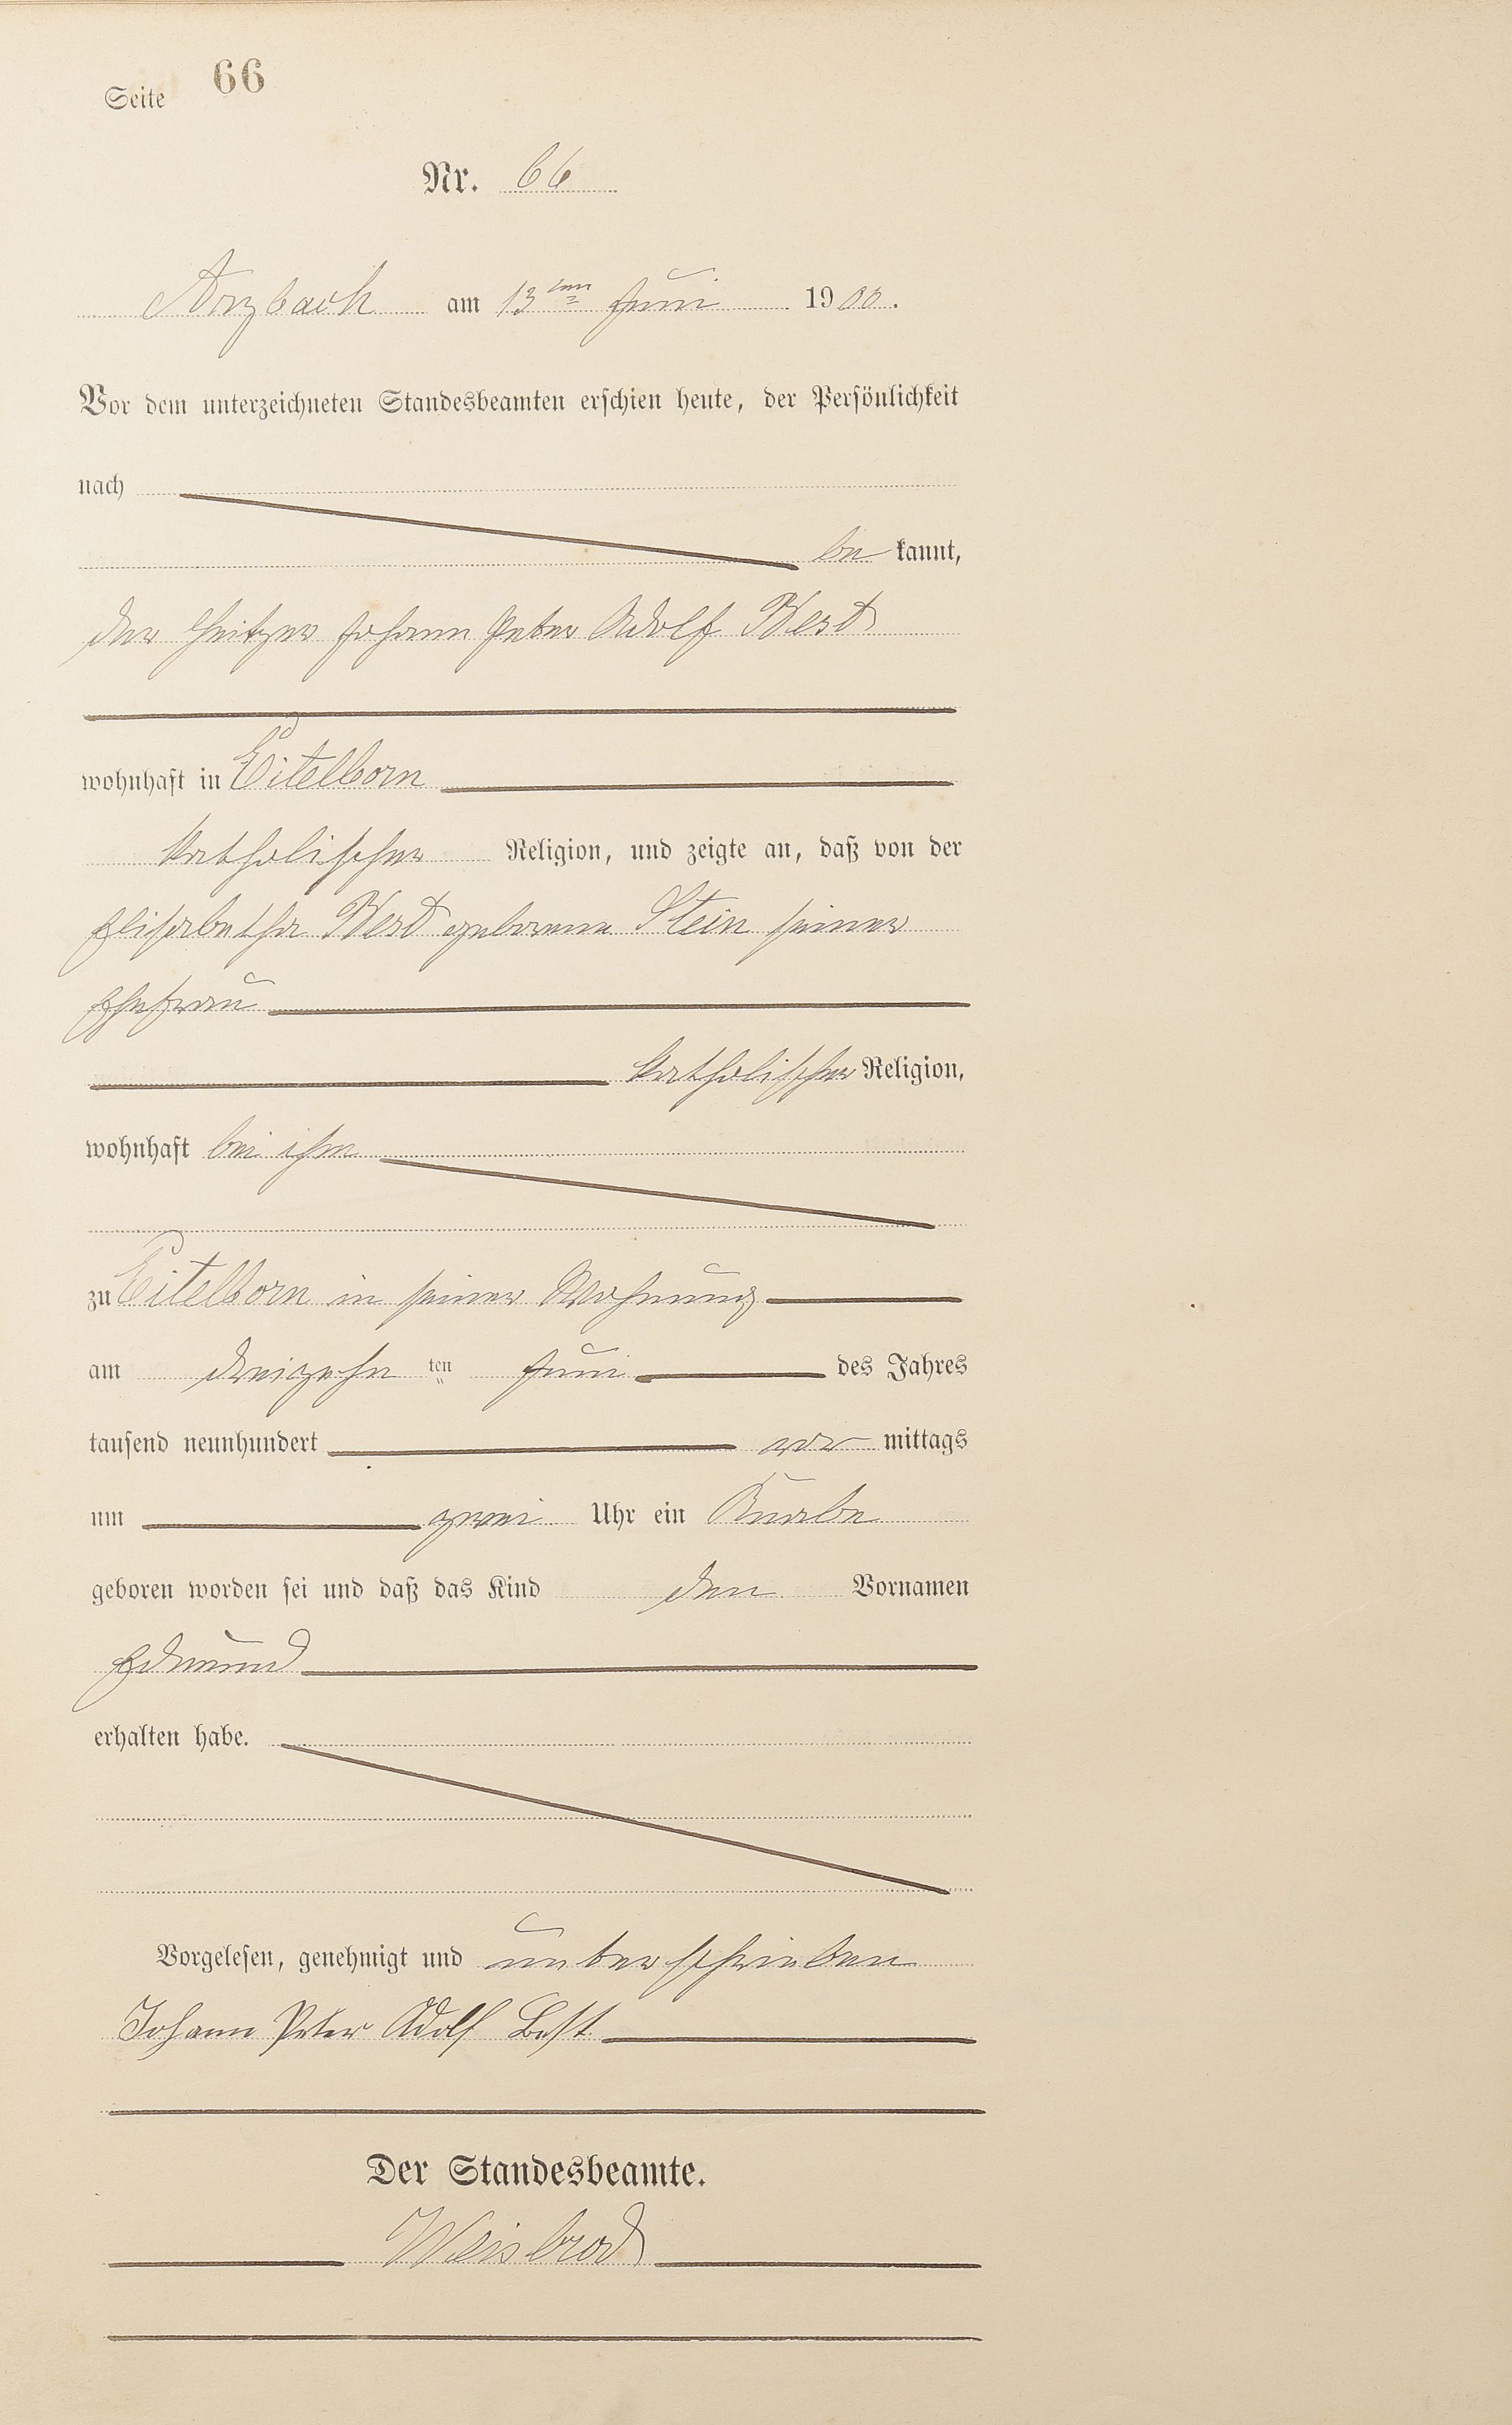 Seite 66
Nr. 66
Arzbach am 13ten Juni 1900.
Vor dem unterzeichneten Standesbeamten erschien heute, der Persönlichkeit
nach
be kannt,
der Heitzer Johann Peter Adolf Best
wohnhaft in Eitelborn
katholischer Religion, und zeigte an, daß von der
Elisabetha Best geborene Stein seiner
Ehefrau
katholischer Religion,
wohnhaft bei ihm
zu Eitelborn in seiner Wohnung
am dreizehn ten Juni des Jahres
tausend neunhundert vor mittags
um zwei Uhr ein Knabe
geboren worden sei und daß das Kind den Vornamen
Edmund
erhalten habe.
Vorgelesen, genehmigt und unterschrieben
Johann Peter Adolf Best
Der Standesbeamte.
Weisbrod